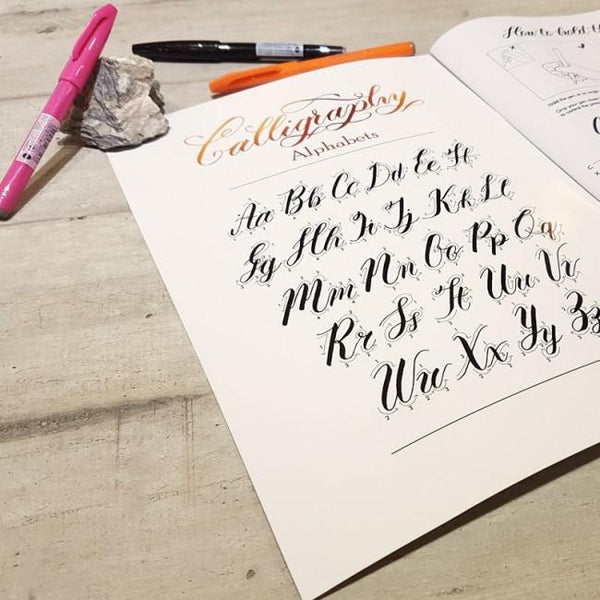 Calligraphy
Alphabets
Aa Bb Cc Dd Ee Ff
Gg Hh Ii Jj Kk Ll
Mm Nn Oo Pp Qq
Rr Ss Tt Uu Vv
Ww Xx Yy Zz
How to hold